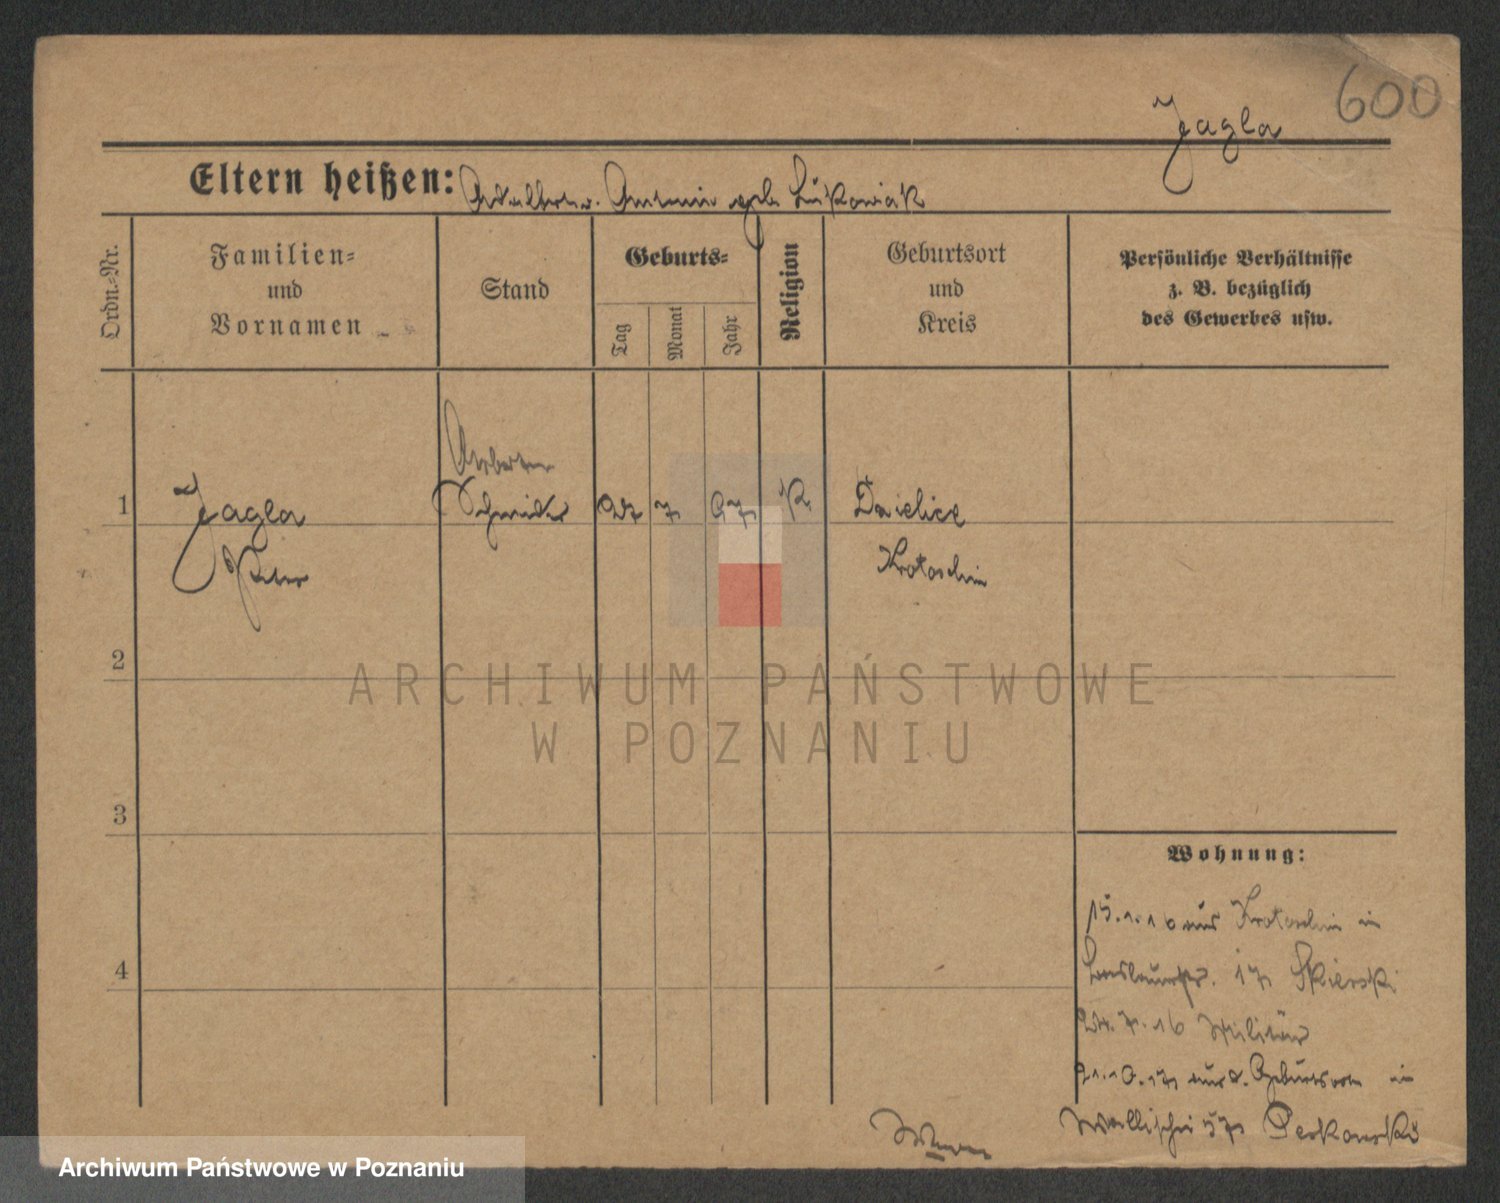 600
Jagla
Eltern heißen: Adalbert u. Antonie geb. Lukowiak
Ordn.-Nr.
Familien-
und
Vornamen
Stand
Geburts-
Tag
Monat
Jahr
Religion
Geburtsort
und
Kreis
Persönliche Verhältnisse
z. B. bezüglich
des Gewerbes usw.
Arbeiter
1 Jagla Schmied 27 7 97 K.
Peter Krotoschin
2
3
4
Wohnung:
15.1.16 aus Krotoschin in
17 Skierski
24.7.16 Militär
21.10.17 aus d. Geburtsort in
Wallischei 57 Peskowski
ARCHIWUM PAŃSTWOWE
W POZNANIU
Archiwum Państwowe w Poznaniu